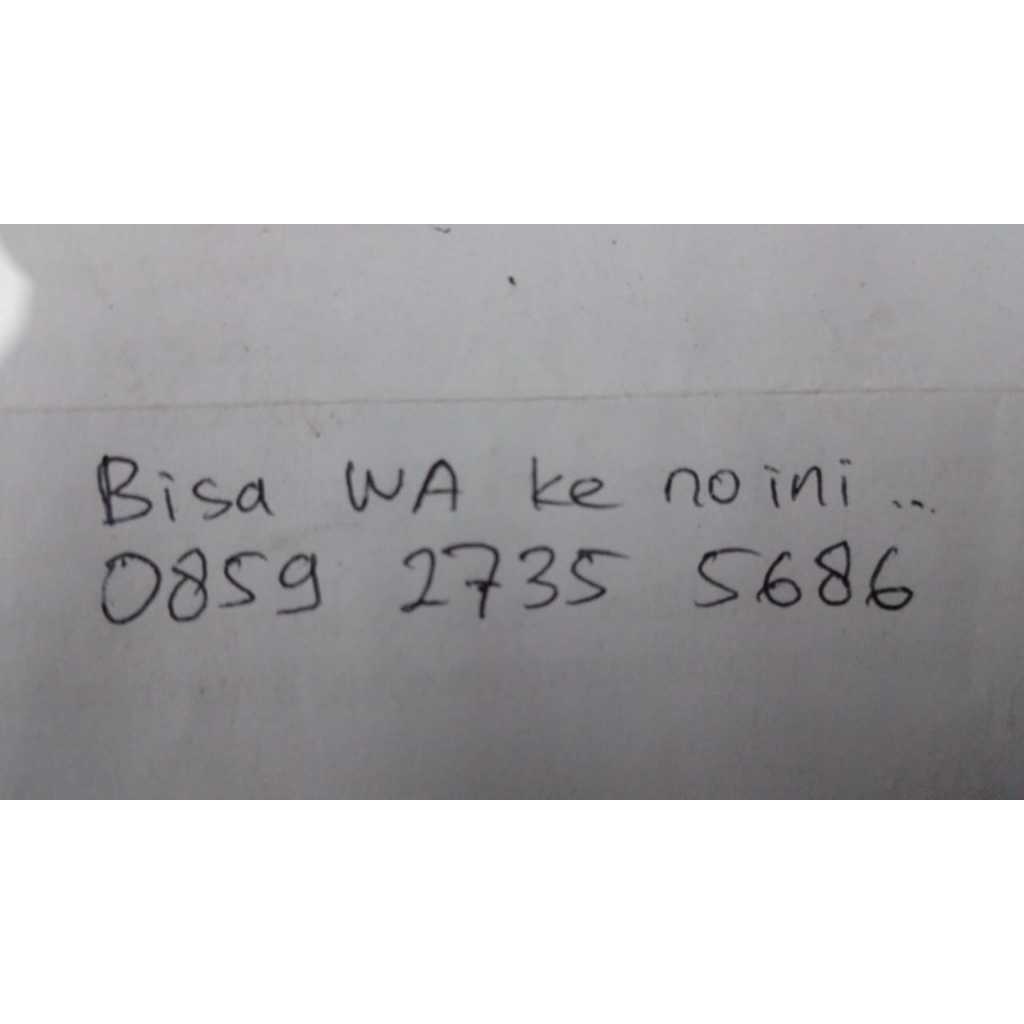 Bisa WA ke no ini ...
0859 2735 5686